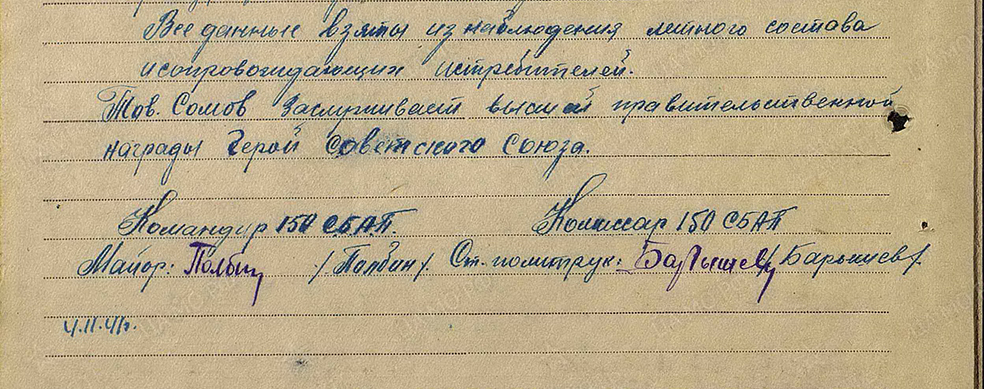 Все данные взяты из наблюдения летного состава
и сопровождающих истребителей.
Тов. Сомов заслуживает высшей правительственной
награды Герой Советского Союза.
Командир 150 СБАП. Комиссар 150 СБАП
Майор: Полбин /Полбин/. Ст. политрук: /Барышев/.
4.11.41г.